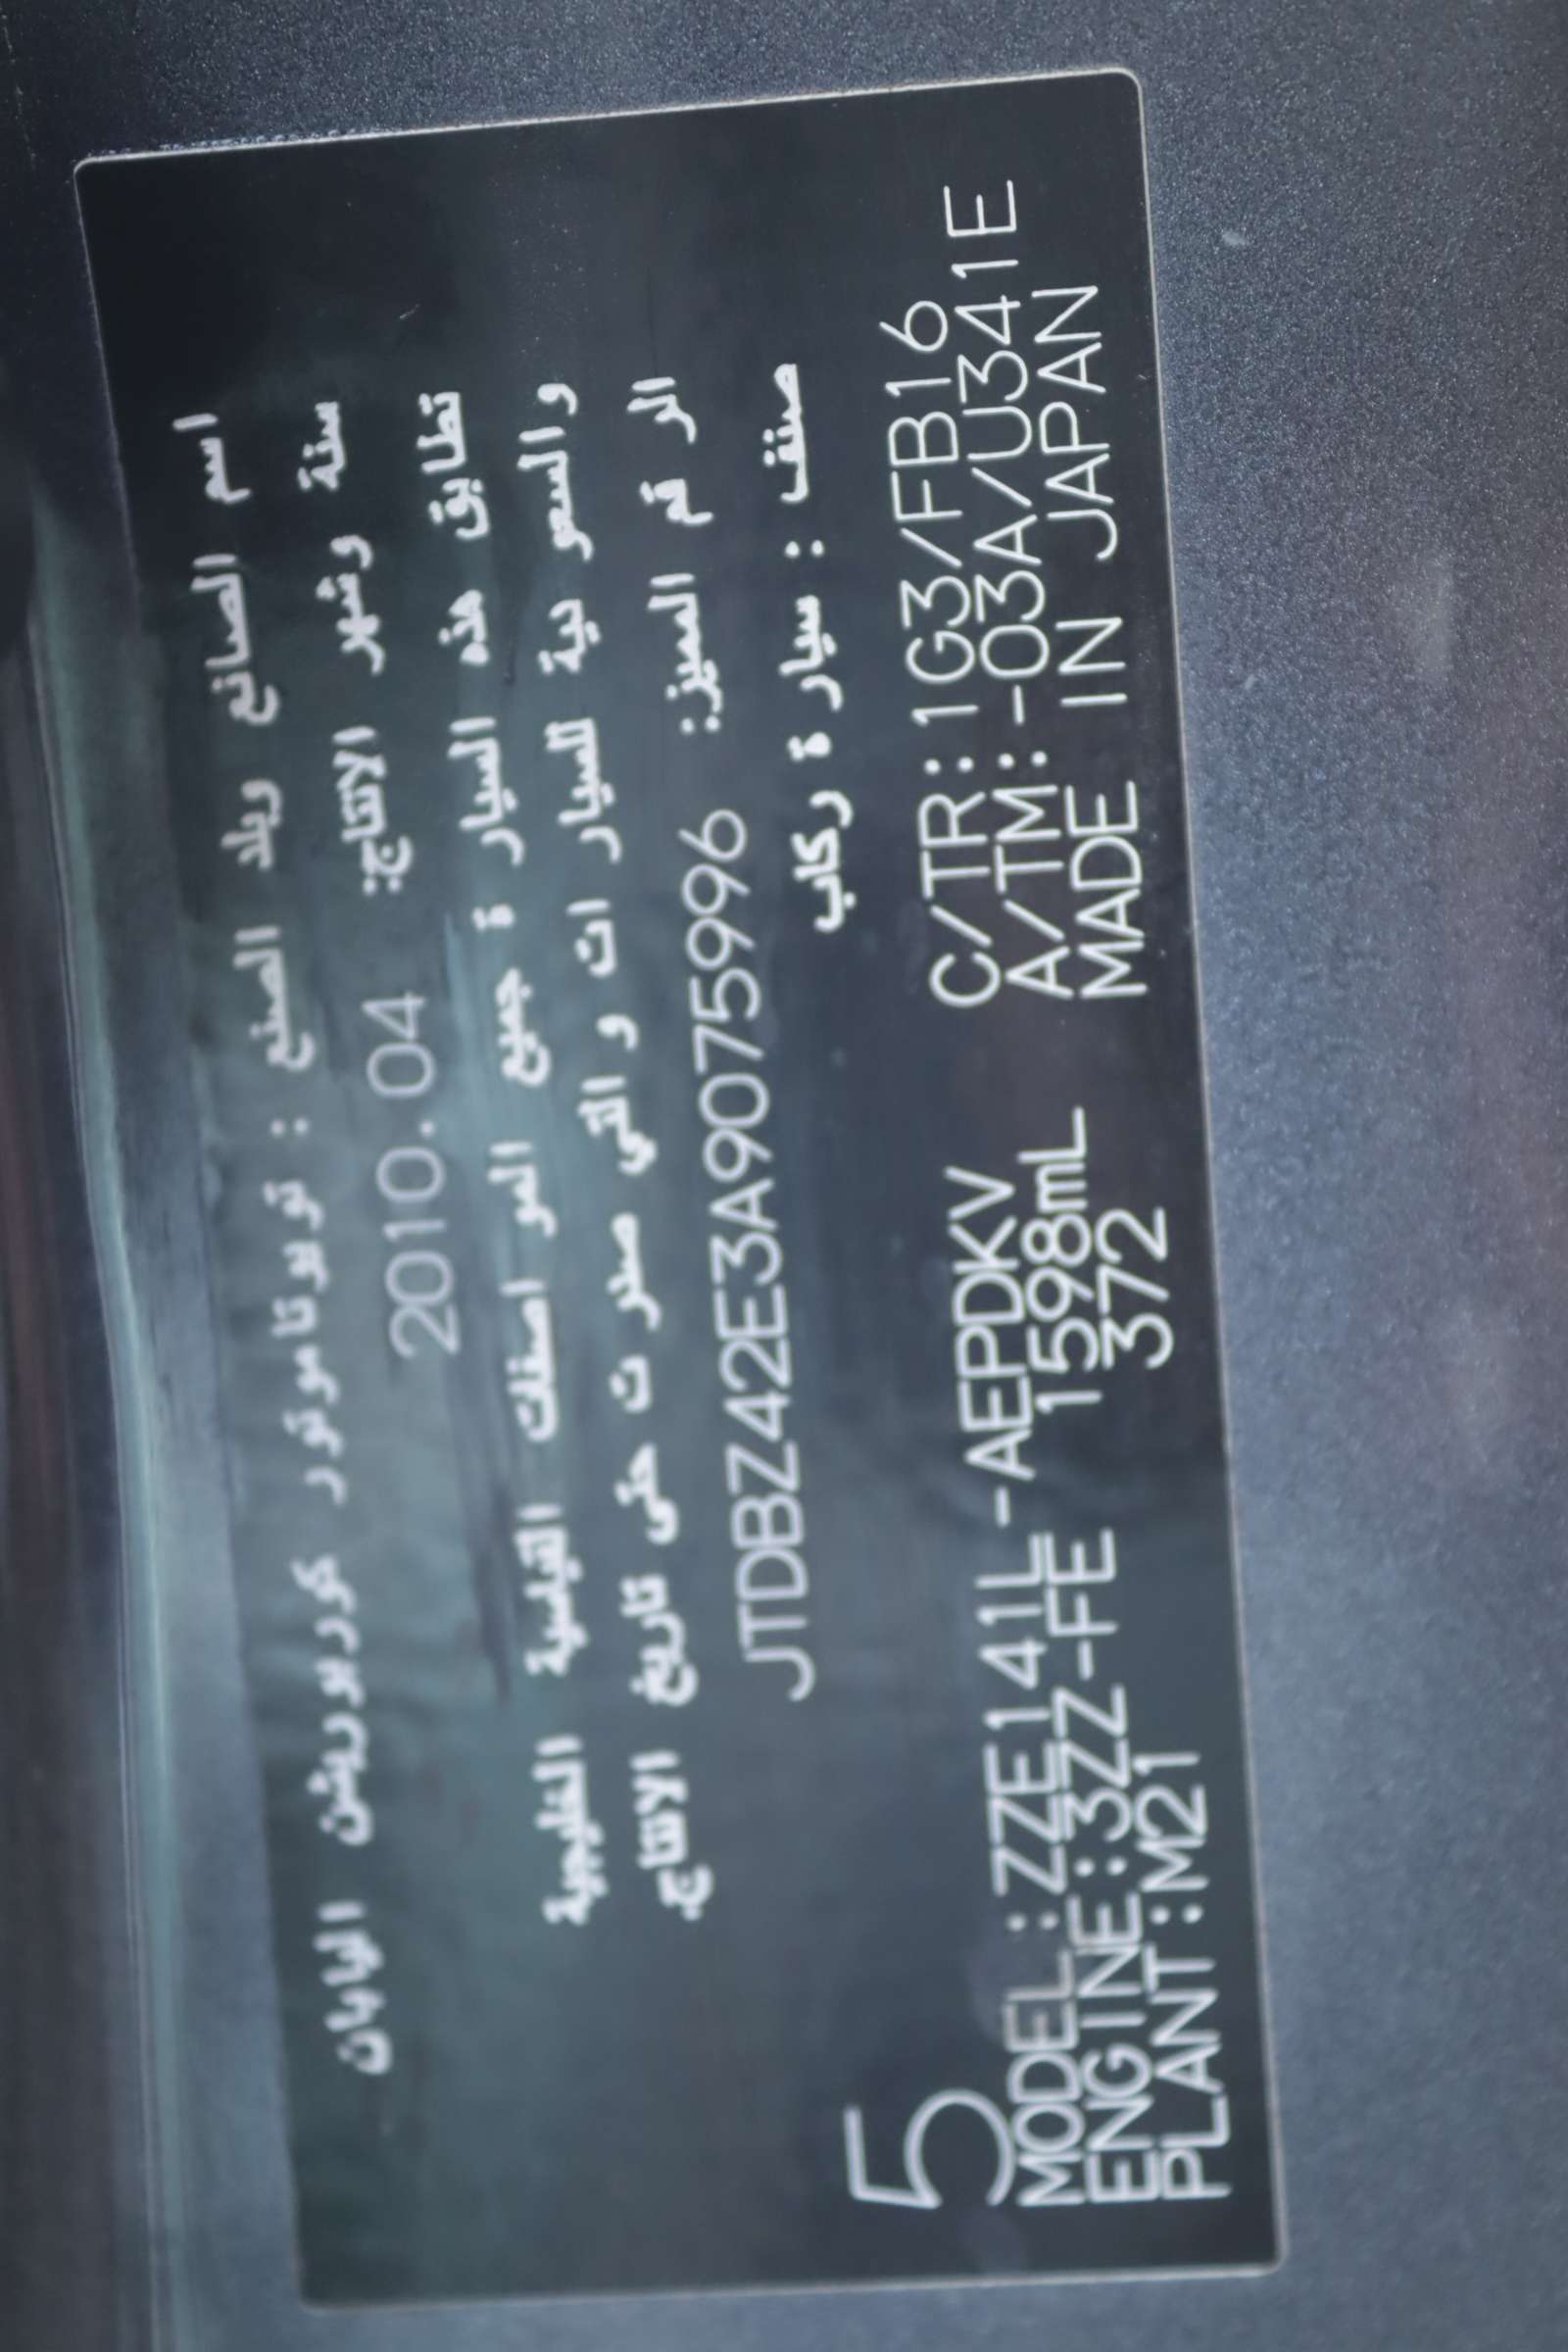 اسم الصانع وبلد الصنع : تويوتاموتور كوربوريشن اليابان
سنة وشهر الانتاج: 2010.04
تطابق هذه السيارة جميع المواصفات القياسية الخليجية
والسعودية للسيارات والتي صدرت حتى تاريخ الانتاج.
الرقم المميز: JTDBZ42E3A9075996
صنف : سيارة ركاب
5
MODEL:ZZE141L-AEPDKV C/TR:1G3/FB16
ENGINE:3ZZ-FE 1598mL A/TM:-03A/U341E
PLANT:M21 372 MADE IN JAPAN